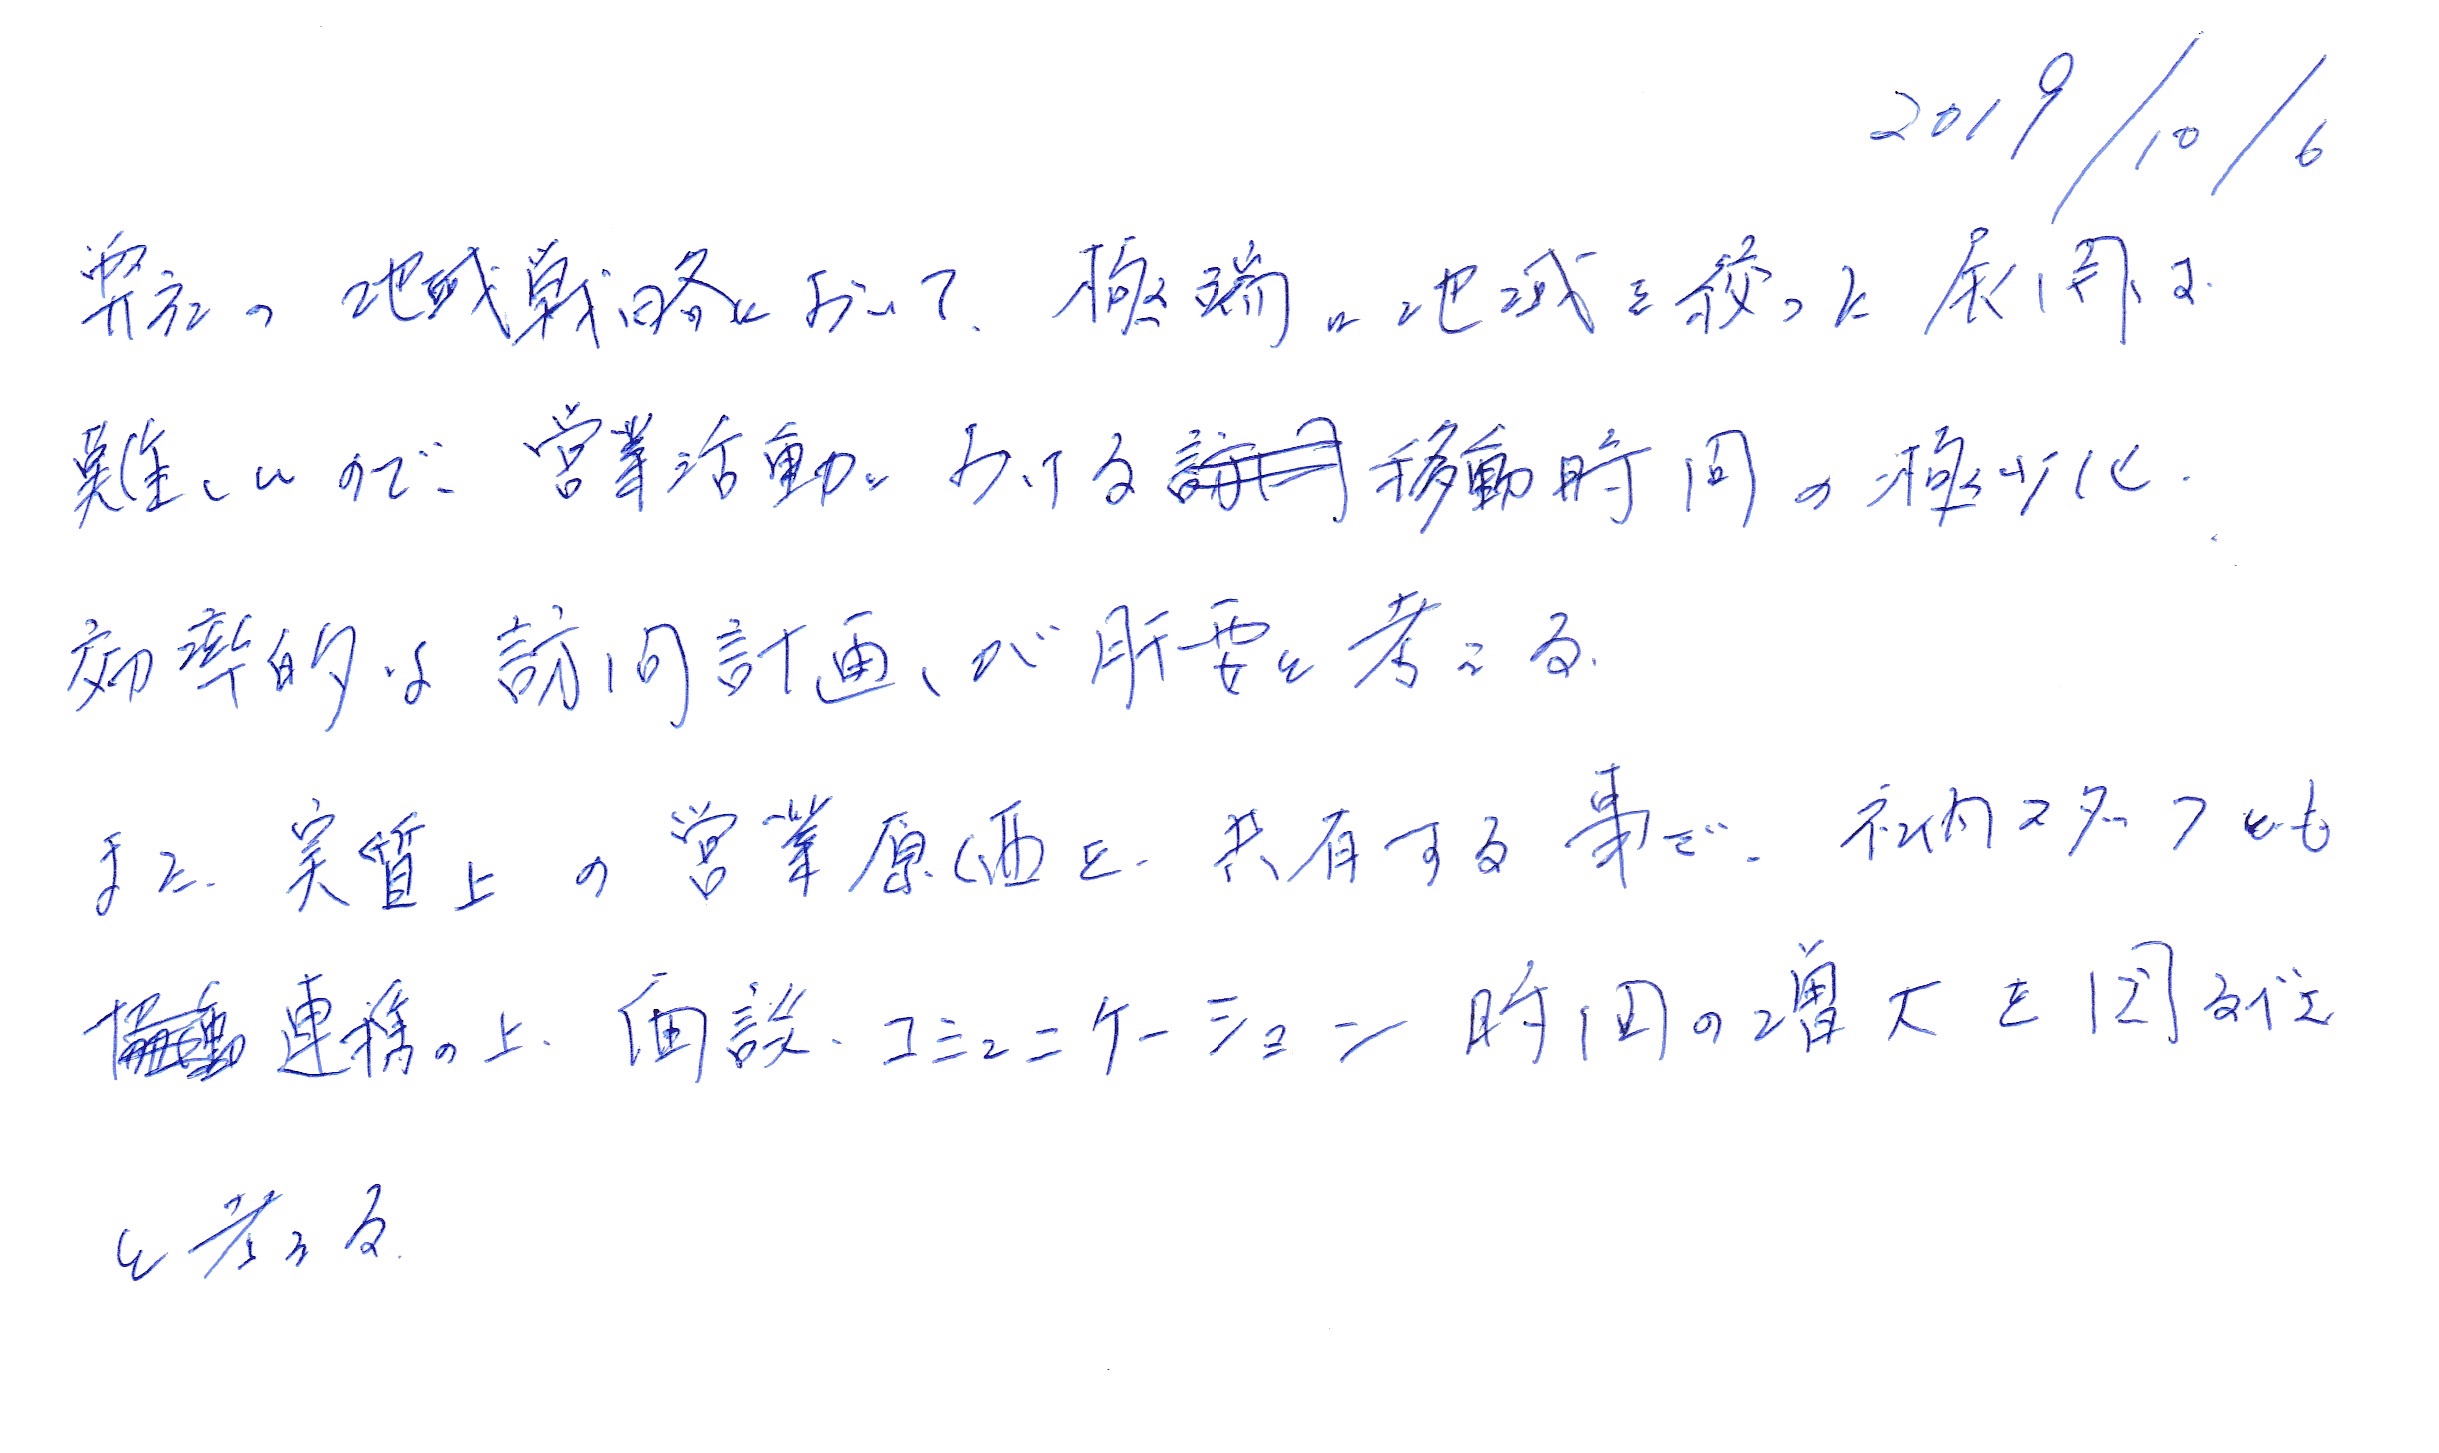 2019/10/6
弊社の地域戦略において、極端に地域を絞った展開は
難しいので、営業活動における移動時間の極少化、
効率的な訪問計画、が肝要と考える。
また、実質上の営業原価を、共有する事で、社内スタッフとも
連携の上、面談、コミュニケーション時間の増大を図るべき
と考える。